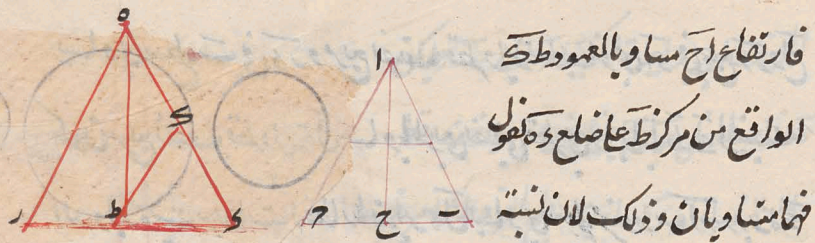 فارتفاع اح مساو بالعمود ط ک
الواقع من مرکز ط علی ضلع ده نقول
فهما متساویان وذلک لان نسبة
ه
ک
ر
ط
د
ا
ح
ب